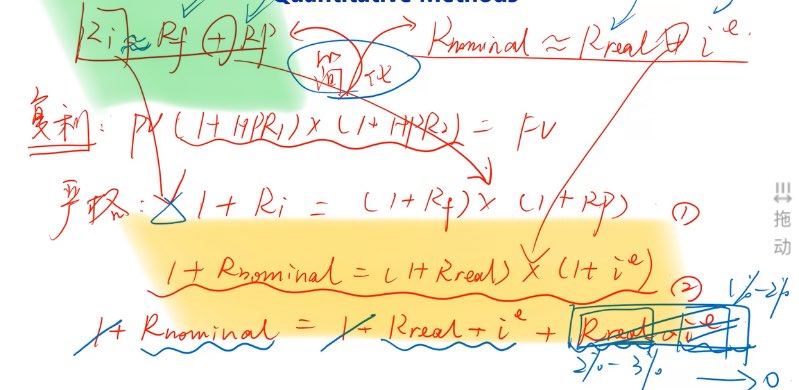 Quantitative methods
Ri ≈ Rf + RP Rnominal ≈ Rreal + i^e
简化
复利: PV (1+HPR1) × (1+HPR2) = FV
严格: 1 + Ri = (1+Rf) × (1+RP) ①
1 + Rnominal = (1+Rreal) × (1+i^e) ②
1%-2%
1 + Rnominal = 1 + Rreal + i^e + Rreal × i^e
2%-3% → 0
拖动